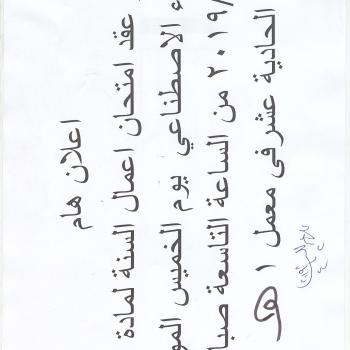 اعلان هام
عقد امتحان اعمال السنة لمادة
ء الاصطناعي يوم الخميس المو
/٢٠١٩ من الساعة التاسعة صبا
الحادية عشر فى معمل ١